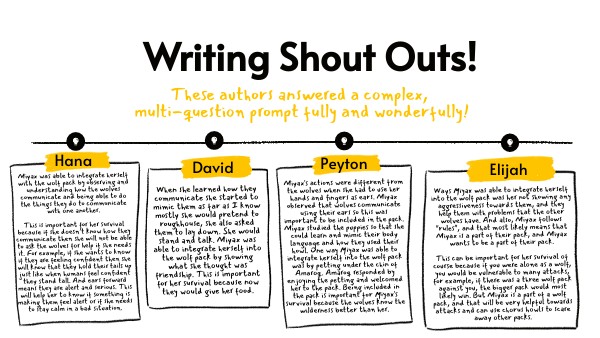 Writing Shout Outs!
These authors answered a complex,
multi-question prompt fully and wonderfully!
Hana
Miyax was able to integrate herself
with the wolf pack by observing and
understanding how the wolves
communicate and being able to do
the things they do to communicate
with one another.
This is important for her survival
because if she doesn't know how they
communicate then she will not be able
to ask the wolves for help if she needs
it. For example, if she wants to know
if they are feeling confident then she
will know that they hold their tails up
just like when humans feel confident
they stand tall. And ears forward
means they are alert and serious. This
will help her to know if something is
making them feel alert or if she needs
to stay calm in a bad situation.
David
When she learned how they
communicate she started to
mimic them as far as I know
mostly she would pretend to
roughhouse, she also asked
them to lay down. She would
stand and talk. Miyax was
able to integrate herself into
the wolf pack by showing
what she thought was
friendship. This is important
for her survival because now
they would give her food.
Peyton
Miyax's actions were different from
the wolves when she had to use her
hands and fingers as ears. Miyax
observed that wolves communicate
using their ears so this was
important to be included in the pack.
Miyax studied the puppies so that she
could learn and mimic their body
language and how they used their
howl. One way Miyax was able to
integrate herself into the wolf pack
was by petting under the chin of
Amaroq. Amaroq responded by
enjoying the petting and welcomed
her to the pack. Being included in
the pack is important for Miyax's
survival because the wolves know the
wilderness better than her.
Elijah
Ways Miyax was able to integrate herself
into the wolf pack was her not showing any
aggressiveness towards them, and they
help them with problems that the other
wolves have. And also, Miyax follows
"rules", and that most likely means that
Miyax is a part of their pack, and Miyax
wants to be a part of their pack.
This can be important for her survival of
course because if you were alone as a wolf,
you would be vulnerable to many attacks,
for example, if there was a three wolf pack
against you, the bigger pack would most
likely win. But Miyax is a part of a wolf
pack, and that will be very helpful towards
attacks and can use chorus howls to scare
away other packs.